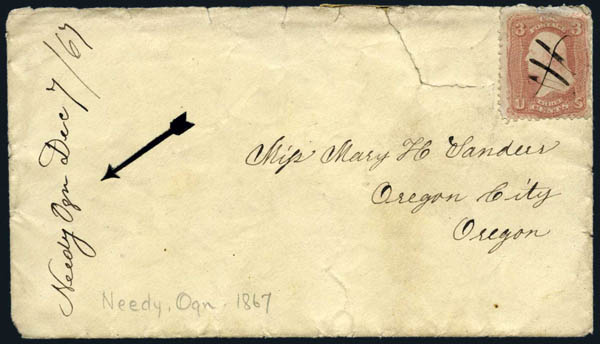 Needy Ogn Dec 7/67
3 U.S. POSTAGE 3
U THREE CENTS S
Miss Mary H Sanders
Oregon City
Oregon
Needy, Ogn. 1867